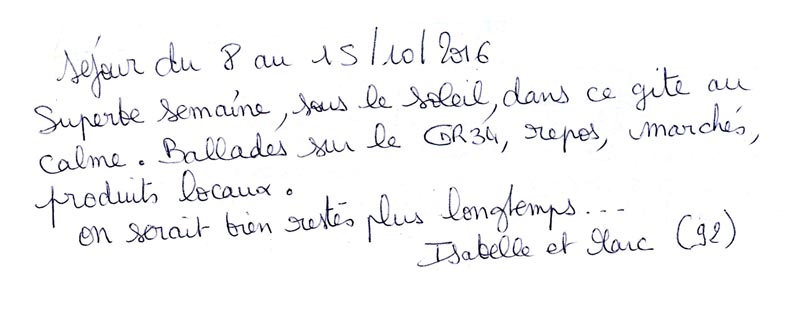 séjour du 8 au 15/10/2016
Superbe semaine, sous le soleil, dans ce gite au
calme. Ballades sur le GR34, repos, marchés,
produits locaux.
on serait bien restés plus longtemps...
Isabelle et Marc (92)